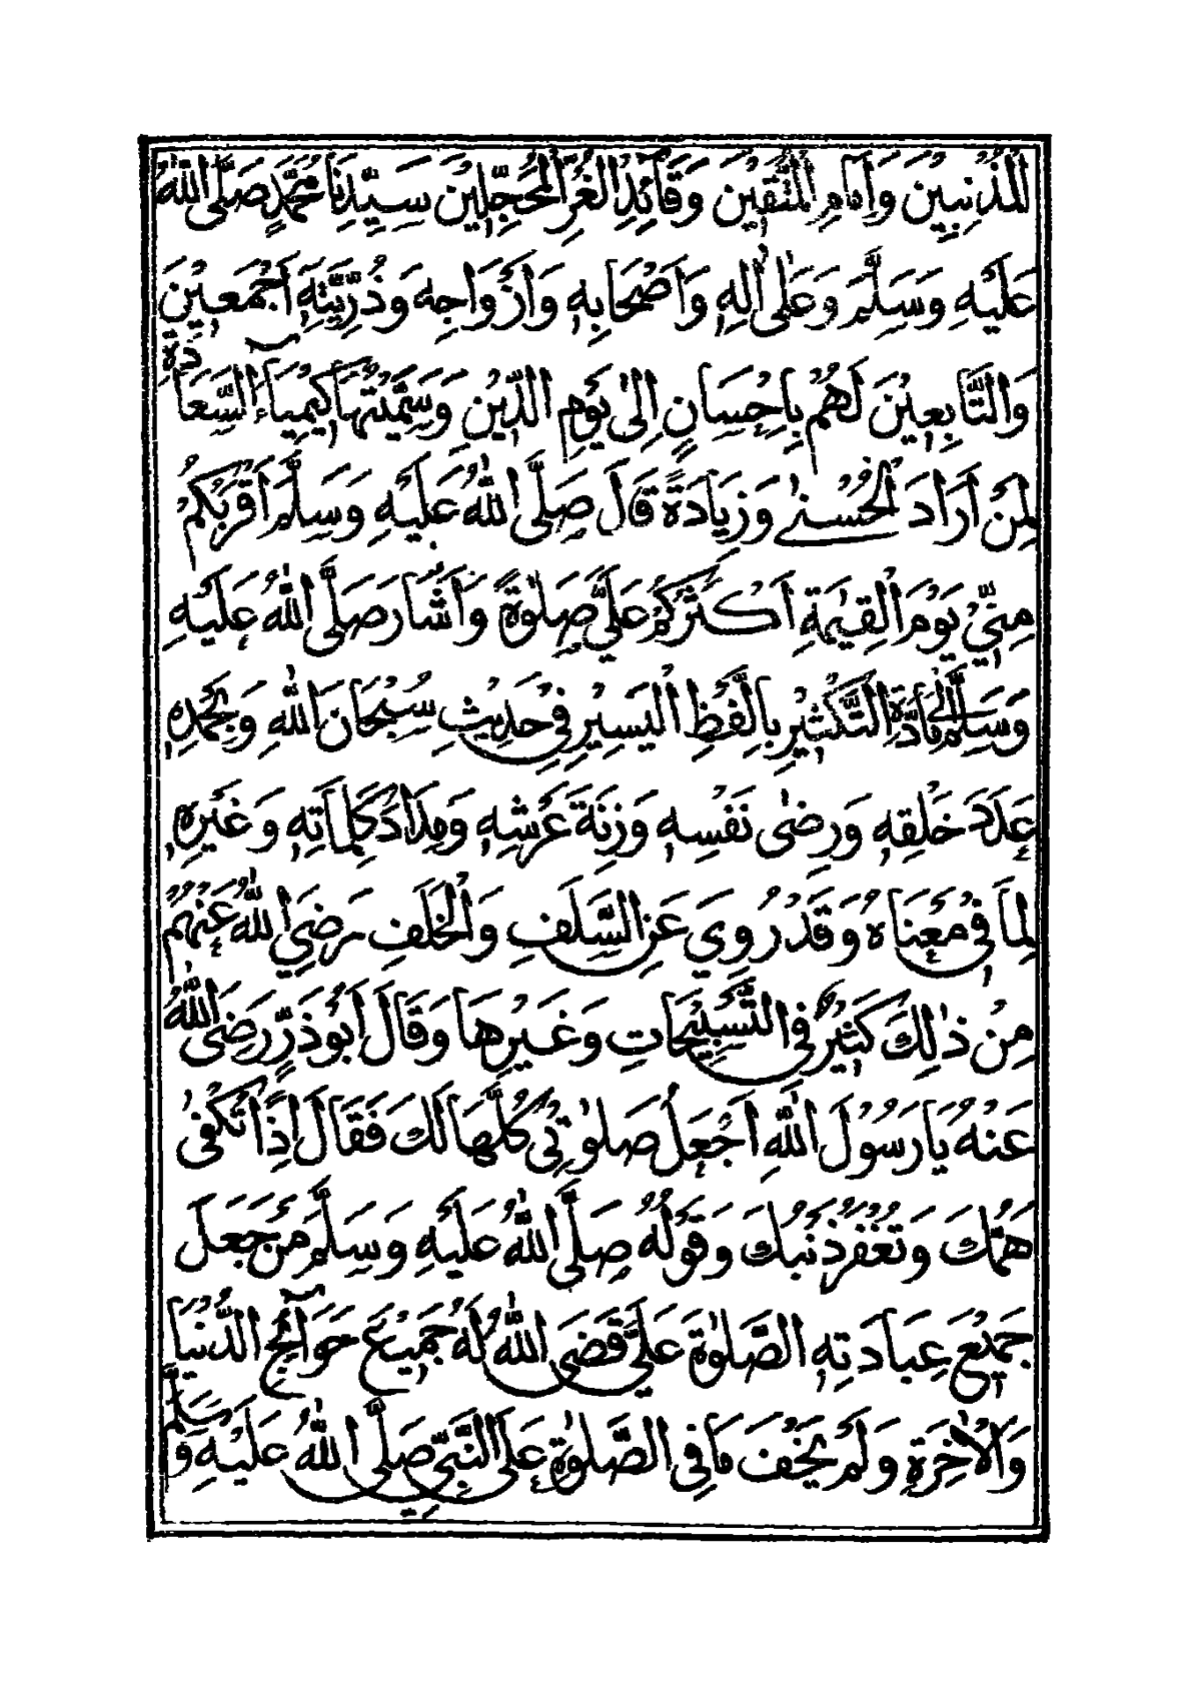 الْمُذْنِبِيْنَ وَاِمَامِ الْمُتَّقِيْنَ وَقَائِدِ الْغُرِّ الْمُحَجَّلِيْنَ سَيِّدِنَا مُحَمَّدٍ صَلَّى اللّٰهُ
عَلَيْهِ وَسَلَّمَ وَعَلٰى اٰلِهٖ وَاَصْحَابِهٖ وَاَزْوَاجِهٖ وَذُرِّيَّتِهٖ اَجْمَعِيْنَ
وَالتَّابِعِيْنَ لَهُمْ بِاِحْسَانٍ اِلٰى يَوْمِ الدِّيْنِ وَسَمَّيْتُهَا كِيْمِيَآءَ السَّعَادَةِ
لِمَنْ اَرَادَ الْحُسْنٰى وَزِيَادَةً قَالَ صَلَّى اللّٰهُ عَلَيْهِ وَسَلَّمَ اَقْرَبُكُمْ
مِنِّيْ يَوْمَ الْقِيٰمَةِ اَكْثَرُكُمْ عَلَيَّ صَلٰوةً وَاَشَارَ صَلَّى اللّٰهُ عَلَيْهِ
وَسَلَّمَ اِلٰى مَادَّةِ التَّكْثِيْرِ بِاللَّفْظِ الْيَسِيْرِ فِيْ حَدِيْثِ سُبْحَانَ اللّٰهِ وَبِحَمْدِهٖ
عَدَدَ خَلْقِهٖ وَرِضٰى نَفْسِهٖ وَزِنَةَ عَرْشِهٖ وَمِدَادَ كَلِمَاتِهٖ وَغَيْرِهٖ
لِمَا فِيْ مَعْنَاهُ وَقَدْ رُوِيَ عَنِ السَّلَفِ وَالْخَلَفِ رَضِيَ اللّٰهُ عَنْهُمْ
مِنْ ذٰلِكَ كَثِيْرٌ فِي التَّسْبِيْحَاتِ وَغَيْرِهَا وَقَالَ اَبُوْ ذَرٍّ رَضِيَ اللّٰهُ
عَنْهُ يَا رَسُوْلَ اللّٰهِ اَجْعَلُ صَلٰوتِيْ كُلَّهَا لَكَ فَقَالَ اِذًا تُكْفٰى
هَمَّكَ وَتُغْفَرُ ذَنْبُكَ وَقَوْلُهُ صَلَّى اللّٰهُ عَلَيْهِ وَسَلَّمَ مَنْ جَعَلَ
جَمِيْعَ عِبَادَتِهِ الصَّلٰوةَ عَلَيَّ قَضَى اللّٰهُ لَهُ جَمِيْعَ حَوَآئِجِ الدُّنْيَا
وَالْاٰخِرَةِ وَلَمْ يَخْفَ مَا فِي الصَّلٰوةِ عَلَى النَّبِيِّ صَلَّى اللّٰهُ عَلَيْهِ وَسَلَّمَ